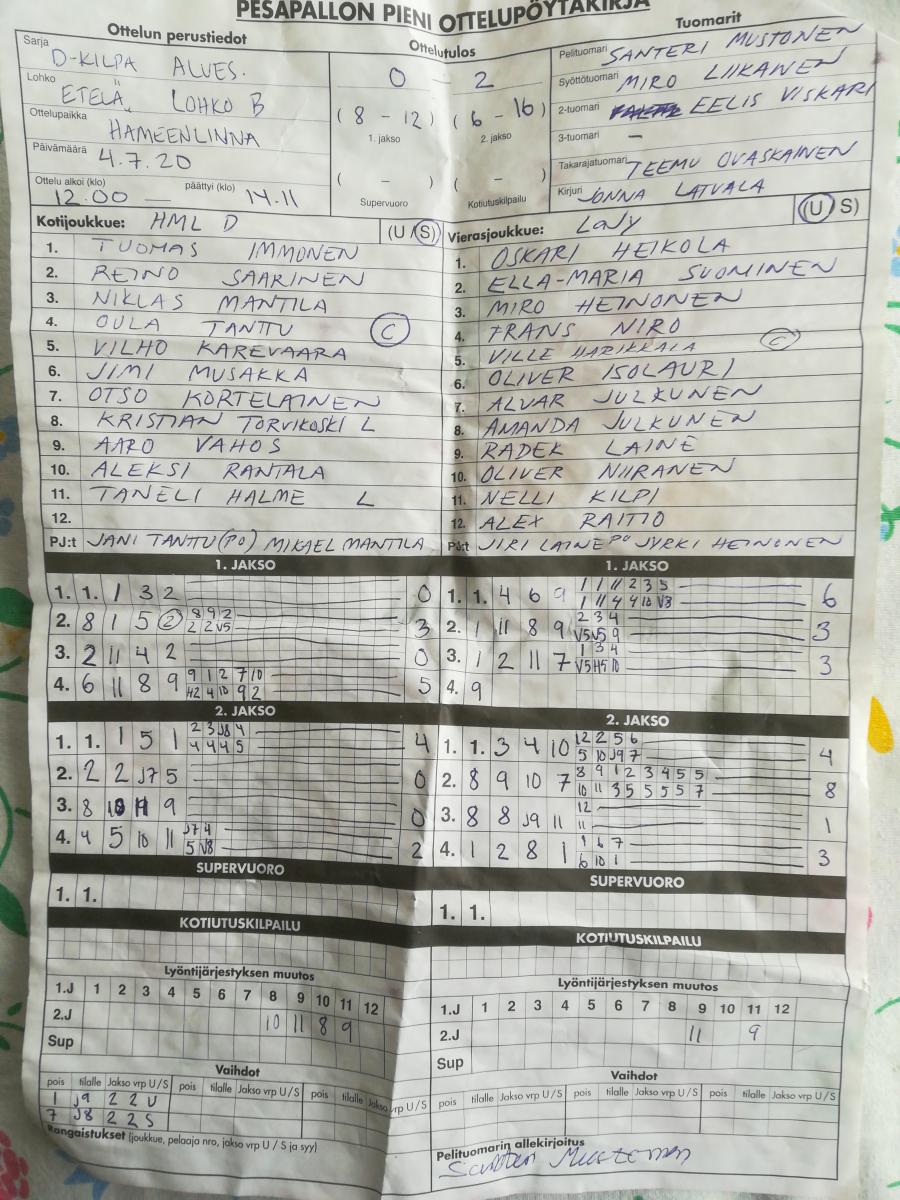 PESÄPALLON PIENI OTTELUPÖYTÄKIRJA
Ottelun perustiedot
Sarja
D-KILPA ALVES.
Lohko
ETELÄ, LOHKO B
Ottelupaikka
HÄMEENLINNA
Päivämäärä
4.7.20
Ottelu alkoi (klo) päättyi (klo)
12.00 — 14.11
Ottelutulos
0 - 2
( 8 - 12 ) ( 6 - 16 )
1. jakso 2. jakso
( - ) ( - )
Supervuoro Kotiutuskilpailu
Tuomarit
Pelituomari SANTERI MUSTONEN
Syöttötuomari MIRO LIIKANEN
2-tuomari EELIS VISKARI
3-tuomari —
Takarajatuomari TEEMU OVASKAINEN
Kirjuri JONNA LATVALA
Kotijoukkue: HML D (U / S)
1. TUOMAS IMMONEN
2. REINO SAARINEN
3. NIKLAS MANTILA
4. OULA TANTTU C
5. VILHO KAREVAARA
6. JIMI MUSAKKA
7. OTSO KORTELAINEN
8. KRISTIAN TORVIKOSKI L
9. AARO VAHOS
10. ALEKSI RANTALA
11. TANELI HALME L
12.
PJ:t JANI TANTTU (PO) MIKAEL MANTILA
Vierasjoukkue: LaJy (U / S)
1. OSKARI HEIKOLA
2. ELLA-MARIA SUOMINEN
3. MIRO HEINONEN
4. FRANS NIRO
5. VILLE HARIKKALA C
6. OLIVER ISOLAURI
7. ALVAR JULKUNEN
8. AMANDA JULKUNEN
9. RADEK LAINE
10. OLIVER NIIRANEN
11. NELLI KILPI
12. ALEX RAITIO
PJ:t JIRI LAINE PO JYRKI HEINONEN
1. JAKSO
1. 1. 1 3 2 0
2. 8 1 5 2 8 9 2 3
2 2 V5
3. 2 11 4 2 0
4. 6 11 8 9 9 1 2 7 10 5
H2 4 10 9 2
2. JAKSO
1. 1. 1 5 1 2 3 J8 4 4
4 4 4 5
2. 2 2 J7 5 0
3. 8 9 0
4. 4 5 10 11 J7 4 2
5 V8
SUPERVUORO
1. 1.
KOTIUTUSKILPAILU
1. JAKSO
1. 1. 4 6 9 1 1 11 2 3 5 6
1 11 4 4 10 V8
2. 1 11 8 9 2 3 4 3
V5 V5 9
3. 1 2 11 7 1 3 4 3
V5 H5 10
4. 9
2. JAKSO
1. 1. 3 4 10 12 2 5 6 4
5 10 J9 7
2. 8 9 10 7 8 9 1 2 3 4 5 5 8
10 11 3 5 5 5 5 7
3. 8 8 J9 11 12 1
11
4. 1 2 8 1 1 6 7 3
6 10 1
SUPERVUORO
1. 1.
KOTIUTUSKILPAILU
Lyöntijärjestyksen muutos
1.J 1 2 3 4 5 6 7 8 9 10 11 12
2.J 10 11 8 9
Sup
Vaihdot
pois tilalle Jakso vrp U / S pois tilalle Jakso vrp U / S pois tilalle Jakso vrp U / S
1 J9 2 2 U
7 J8 2 2 S
Rangaistukset (joukkue, pelaaja nro, jakso vrp U / S ja syy)
Lyöntijärjestyksen muutos
1.J 1 2 3 4 5 6 7 8 9 10 11 12
2.J 11 9
Sup
Vaihdot
pois tilalle Jakso vrp U / S pois tilalle Jakso vrp U / S pois tilalle Jakso vrp U / S
Pelituomarin allekirjoitus
Santeri Mustonen